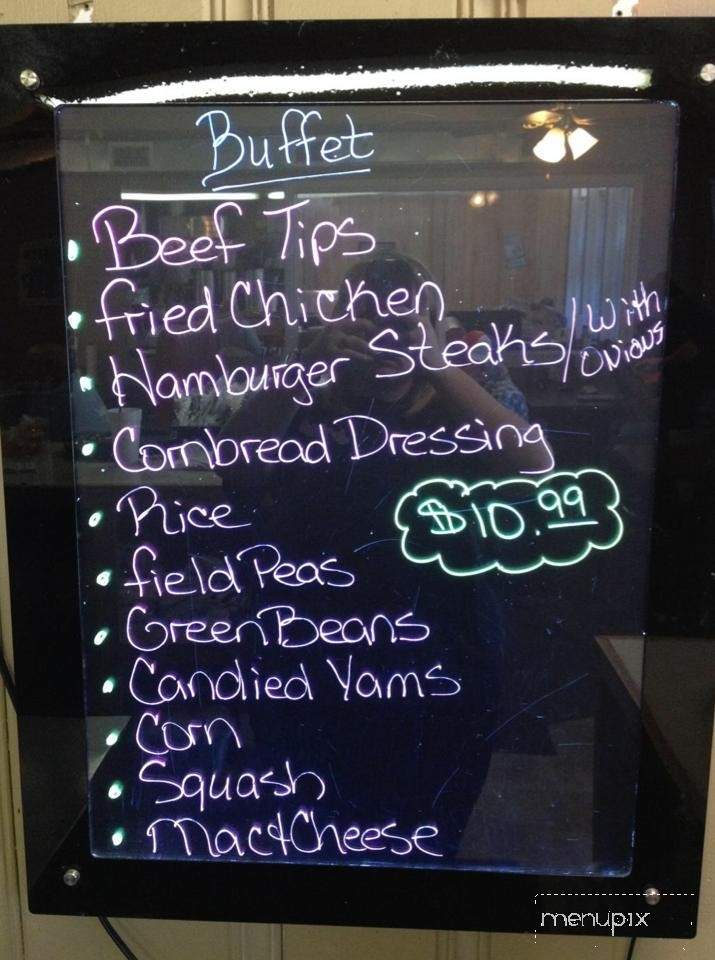 Buffet
Beef Tips
fried Chicken
Hamburger Steaks/With Onions
Cornbread Dressing
Rice
$10.99
field Peas
Green Beans
Candied Yams
Corn
Squash
Mac & Cheese
menupix